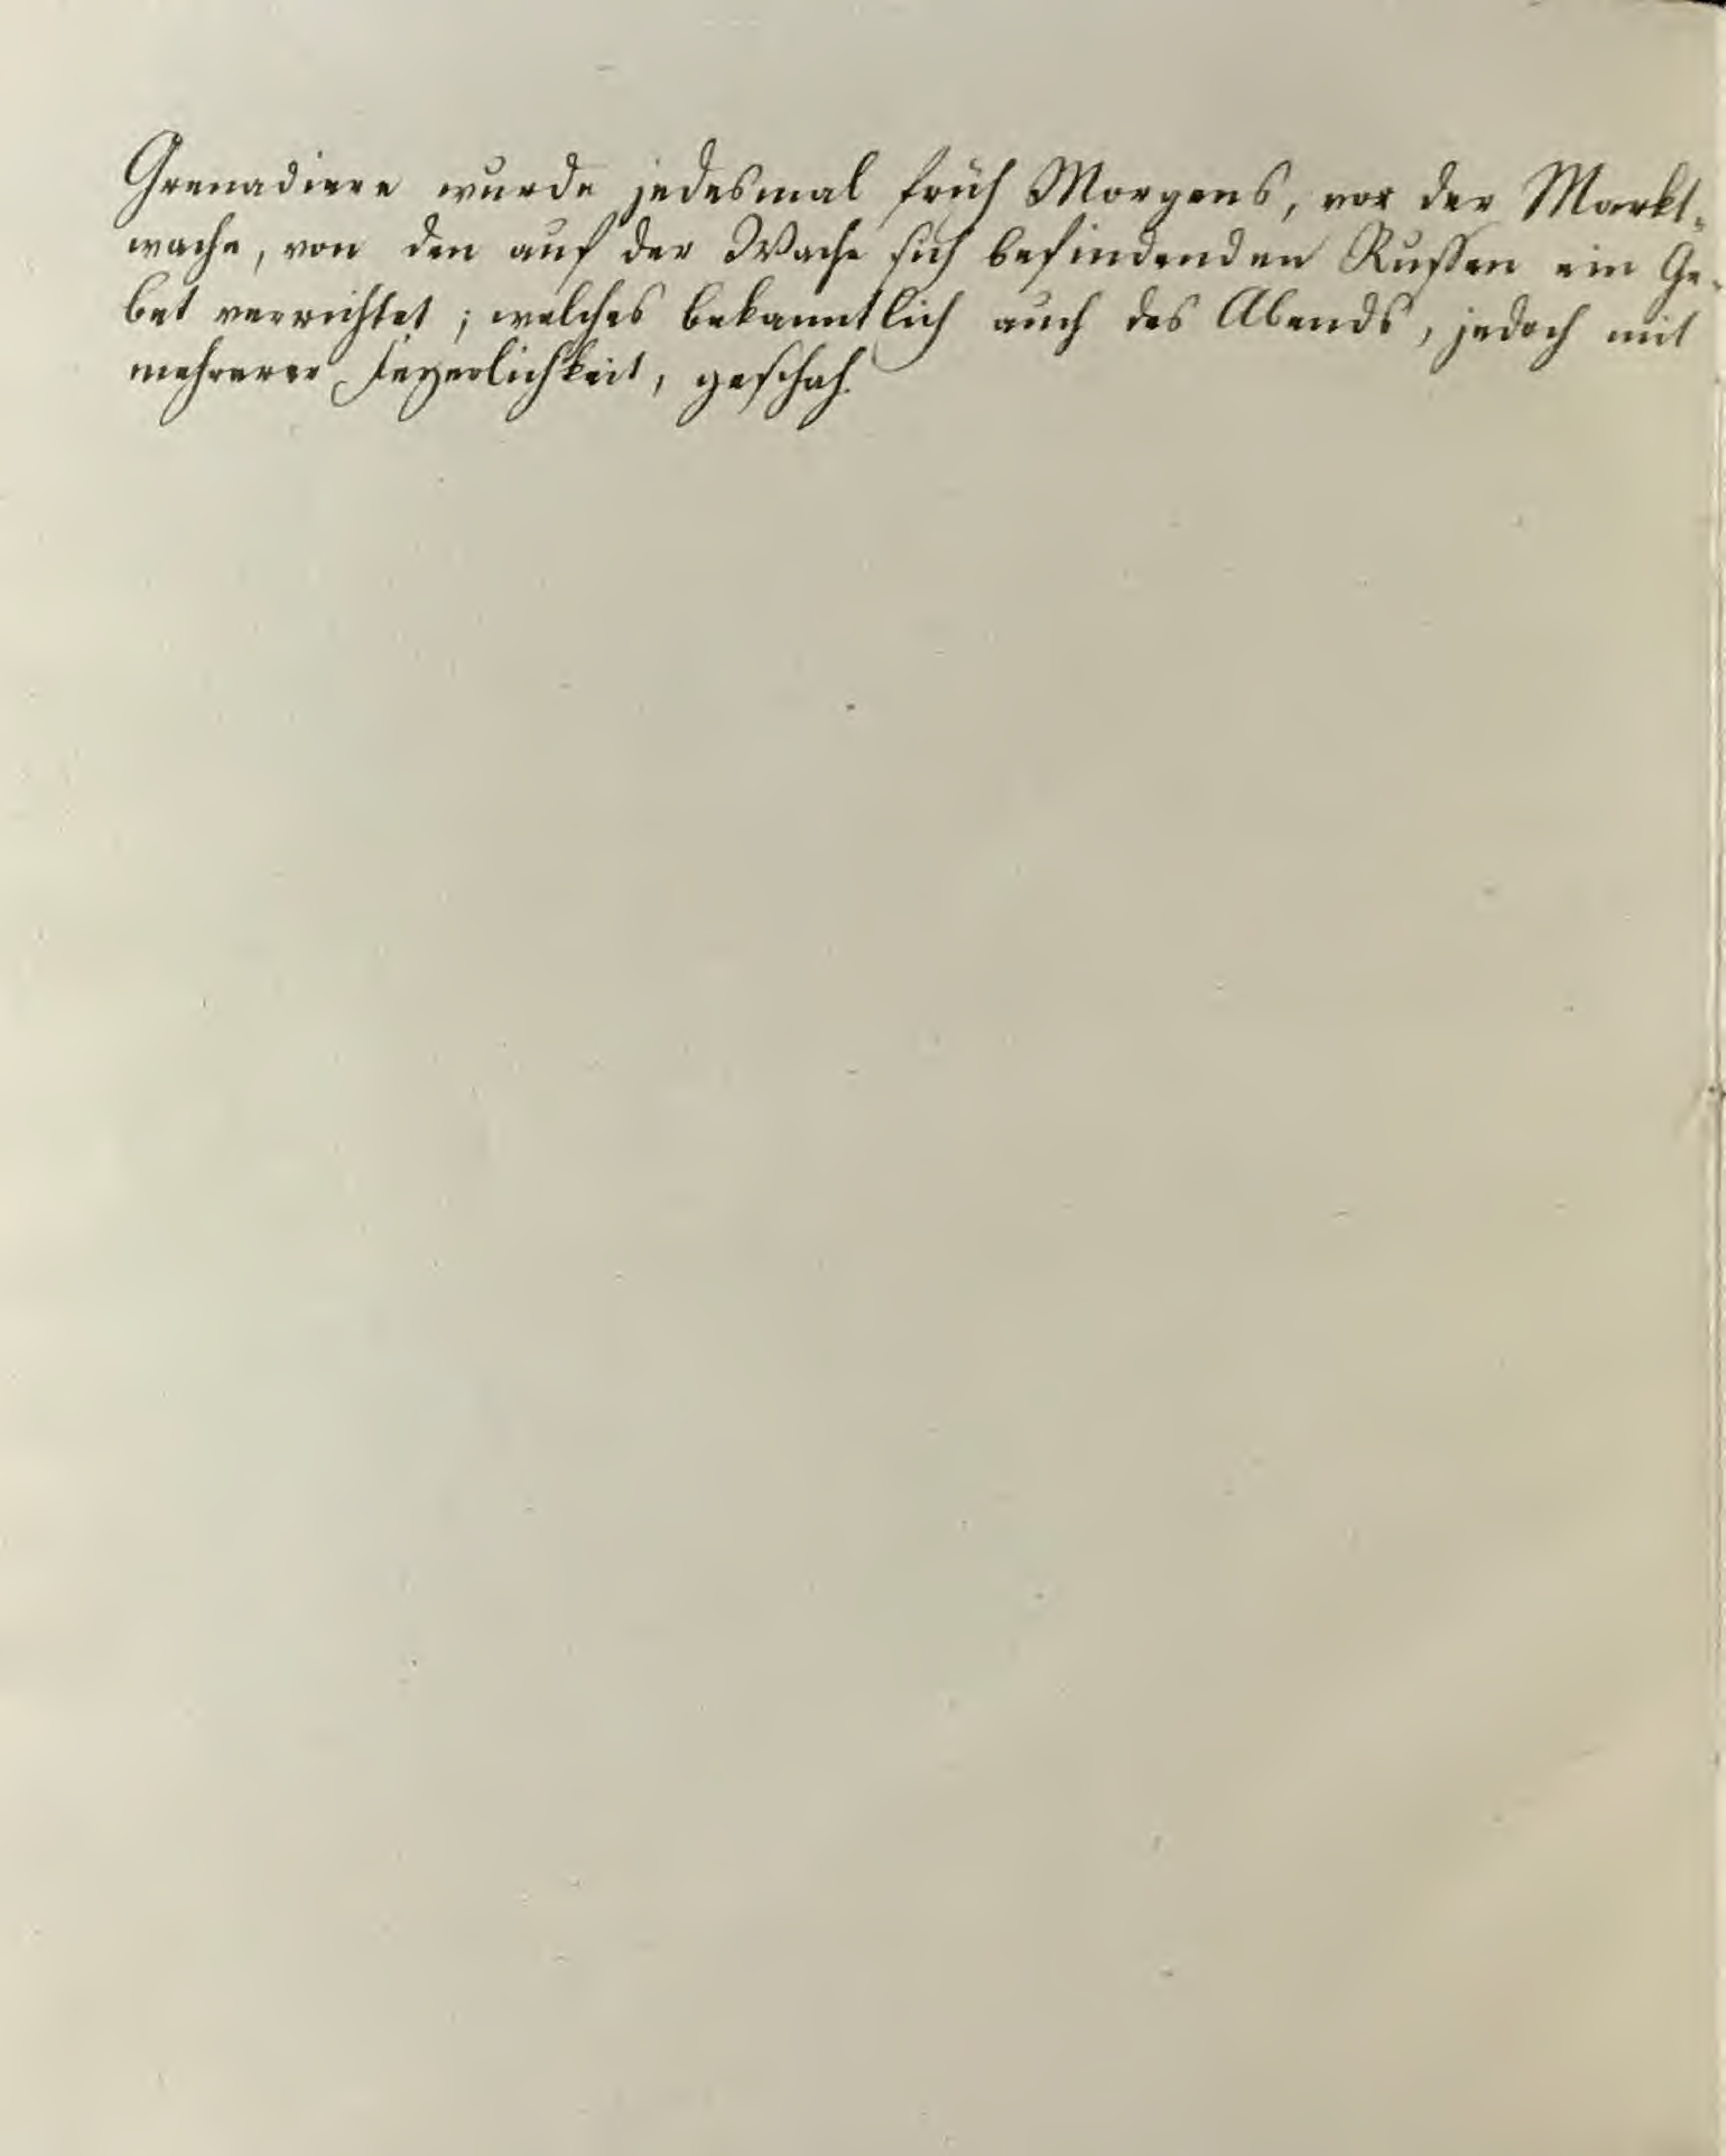 Grenadiere wurde jedesmal früh Morgens, vor der Markt-
wache, von den auf der Wache sich befindenden Russen ein Ge-
bet verrichtet; welches bekanntlich auch des Abends, jedoch mit
mehrerer Feyerlichkeit, geschah.